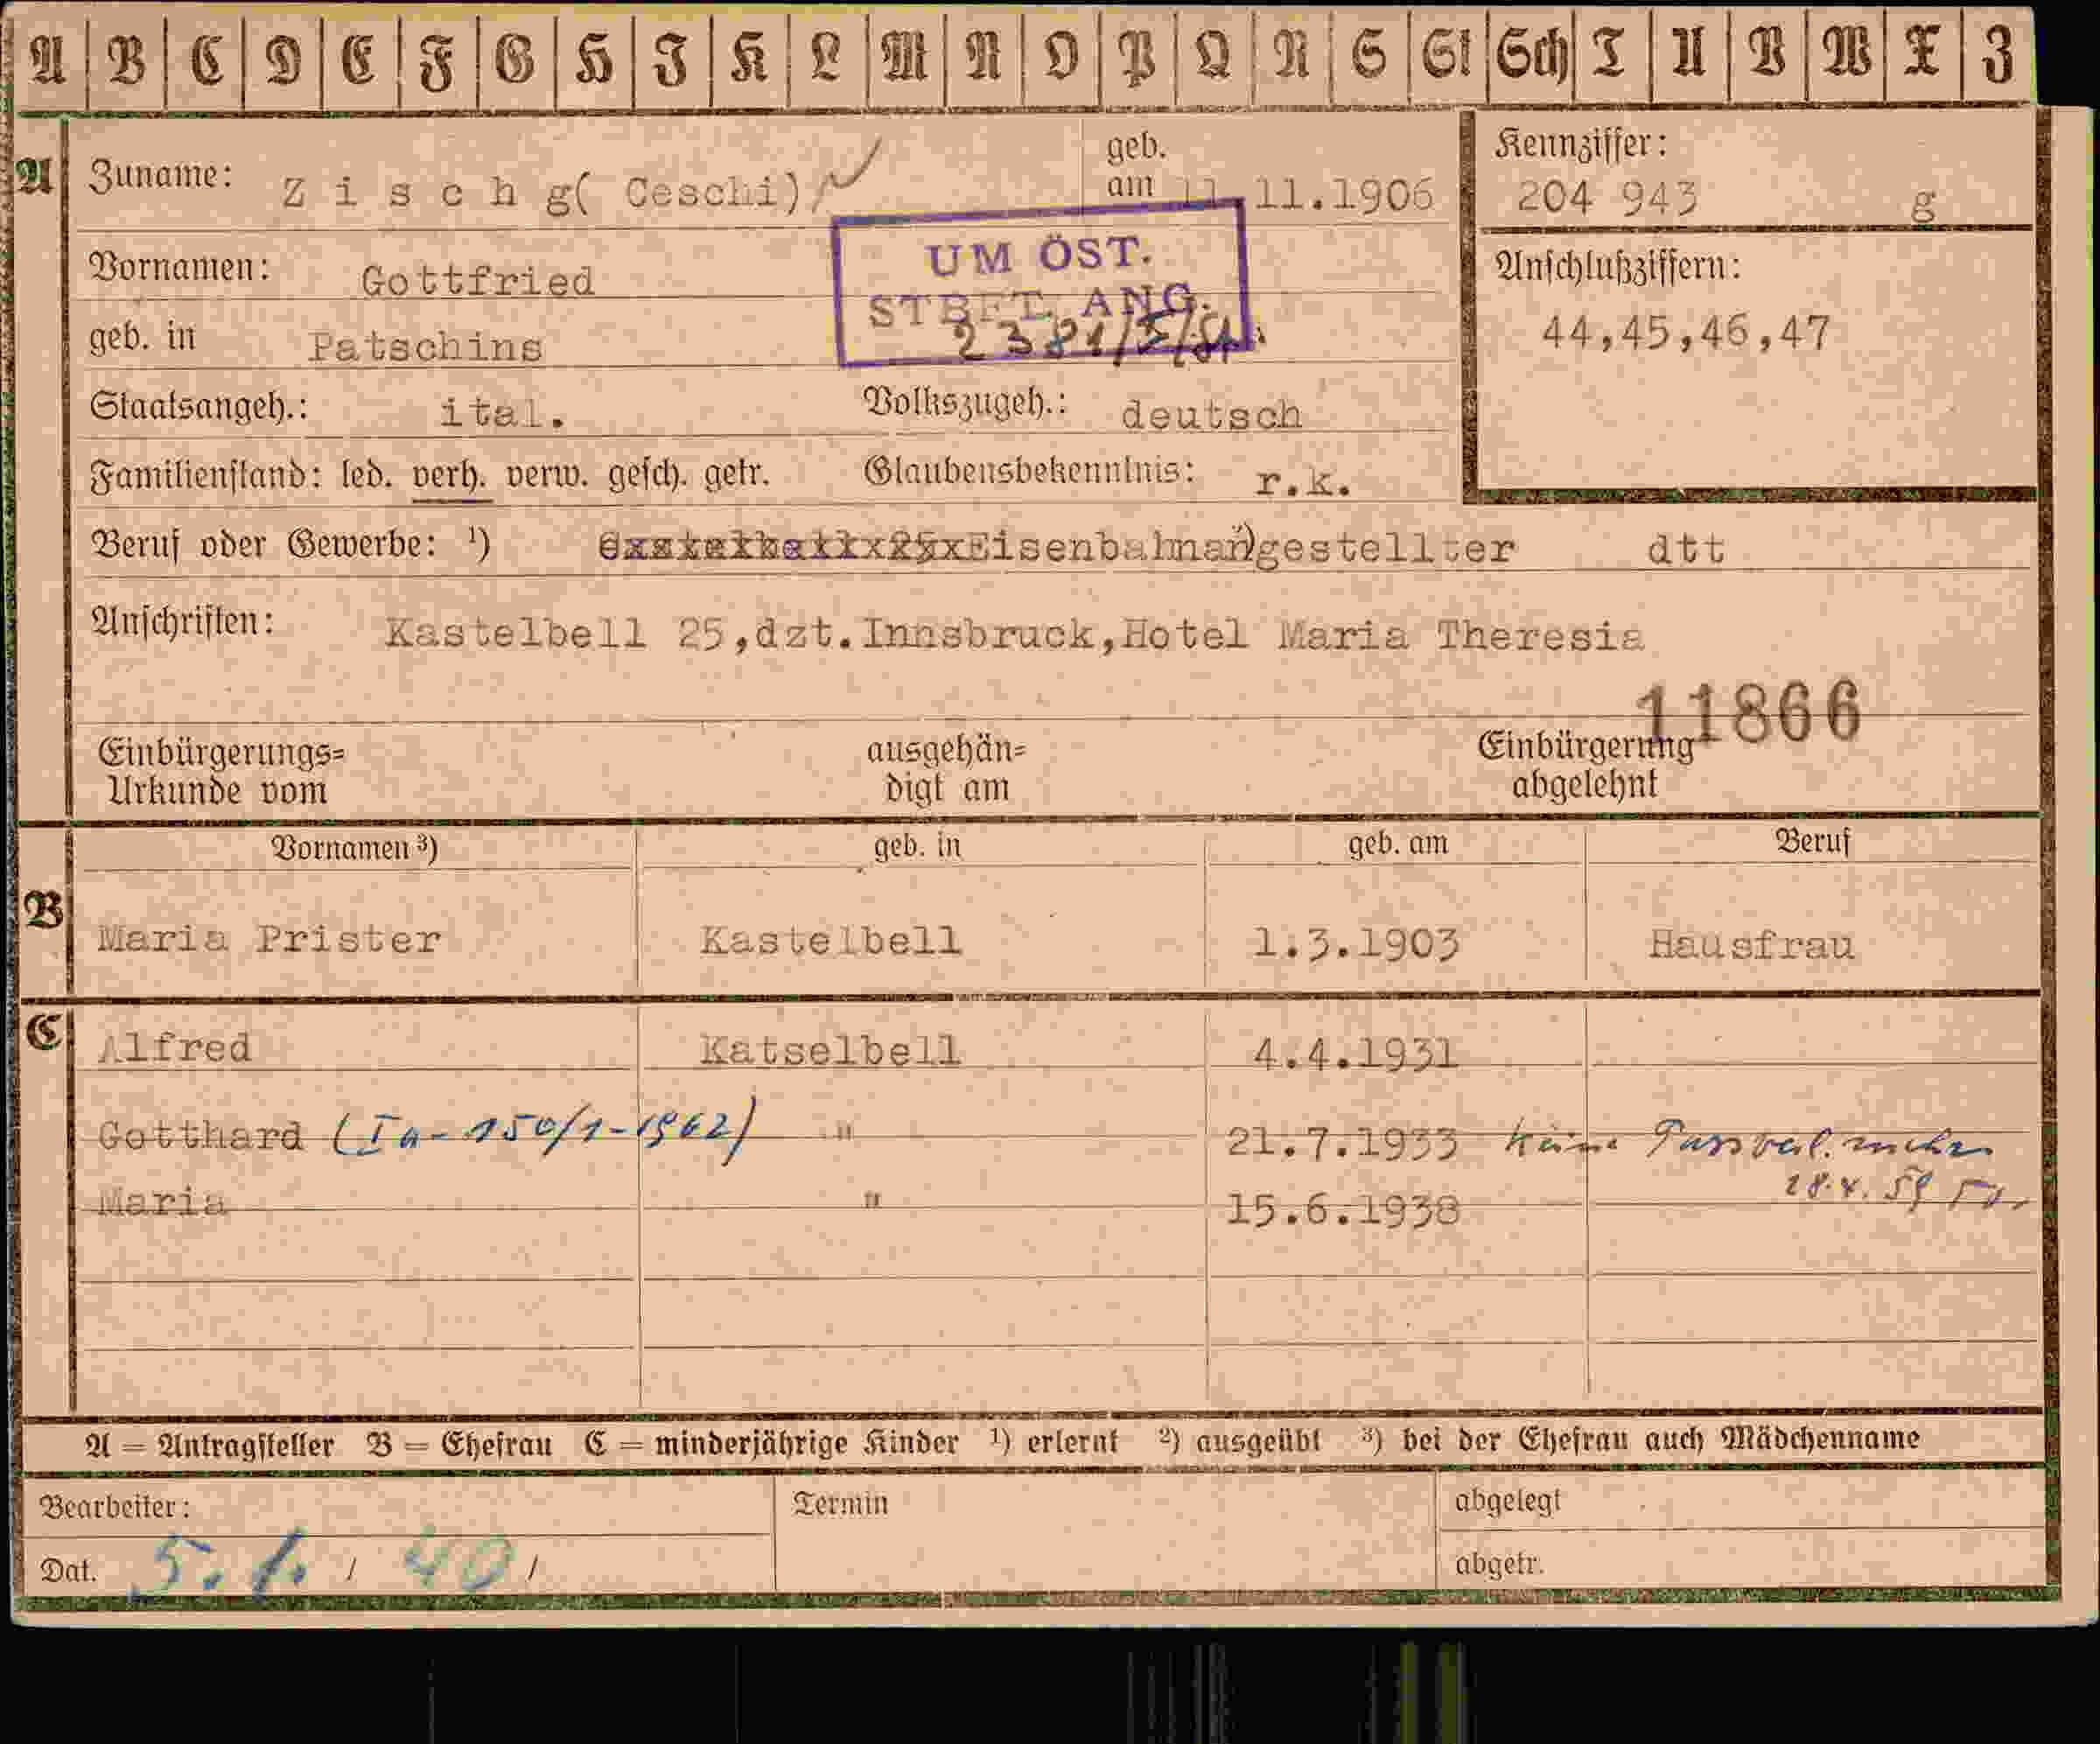 A B C D E F G H I K L M N O P Q R S St Sch T U V W X Z
A Zuname: Z i s c h g( Ceschi) geb. am 11.11.1906 Kennziffer: 204 943 g
UM ÖST.
Vornamen: Gottfried Anschlußziffern:
STBFT. ANG.
geb. in Patschins 2381/ 44,45,46,47
Staatsangeh.: ital. Volkszugeh.: deutsch
Familienstand: led. verh. verw. gesch. getr. Glaubensbekenntnis: r.k.
Beruf oder Gewerbe: ¹) Eisenbahnangestellter dtt
Anschriften: Kastelbell 25,dzt.Innsbruck,Hotel Maria Theresia
11866
Einbürgerungs= ausgehän= Einbürgerung
Urkunde vom digt am abgelehnt
Vornamen ³) geb. in geb. am Beruf
B Maria Prister Kastelbell 1.3.1903 Hausfrau
C Alfred Katselbell 4.4.1931
Gotthard (Ia-150/1-1962) " 21.7.1933 keine
Maria " 15.6.1938
A = Antragsteller B = Ehefrau C = minderjährige Kinder ¹) erlernt ²) ausgeübt ³) bei der Ehefrau auch Mädchenname
Bearbeiter: Termin abgelegt
Dat. 5.1./ 40/ abgetr.